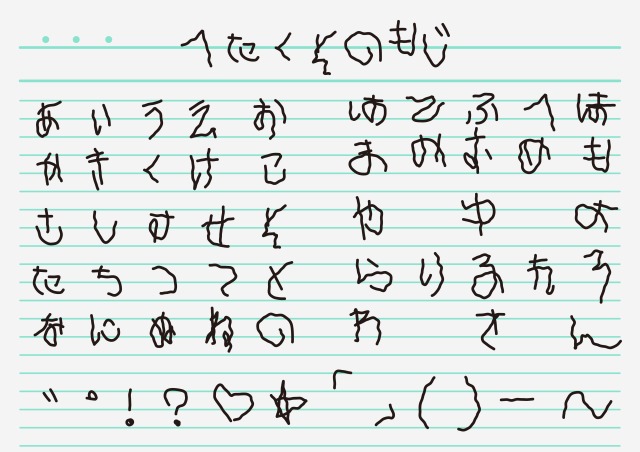 へたくそのもじ
あ い う え お は ひ ふ へ ほ
か き く け こ ま み む め も
さ し す せ そ や ゆ よ
た ち つ て と ら り る れ ろ
な に ぬ ね の わ を ん
゛ ゜ ! ? ♡ ☆ 「 」 ( ) ー 〜